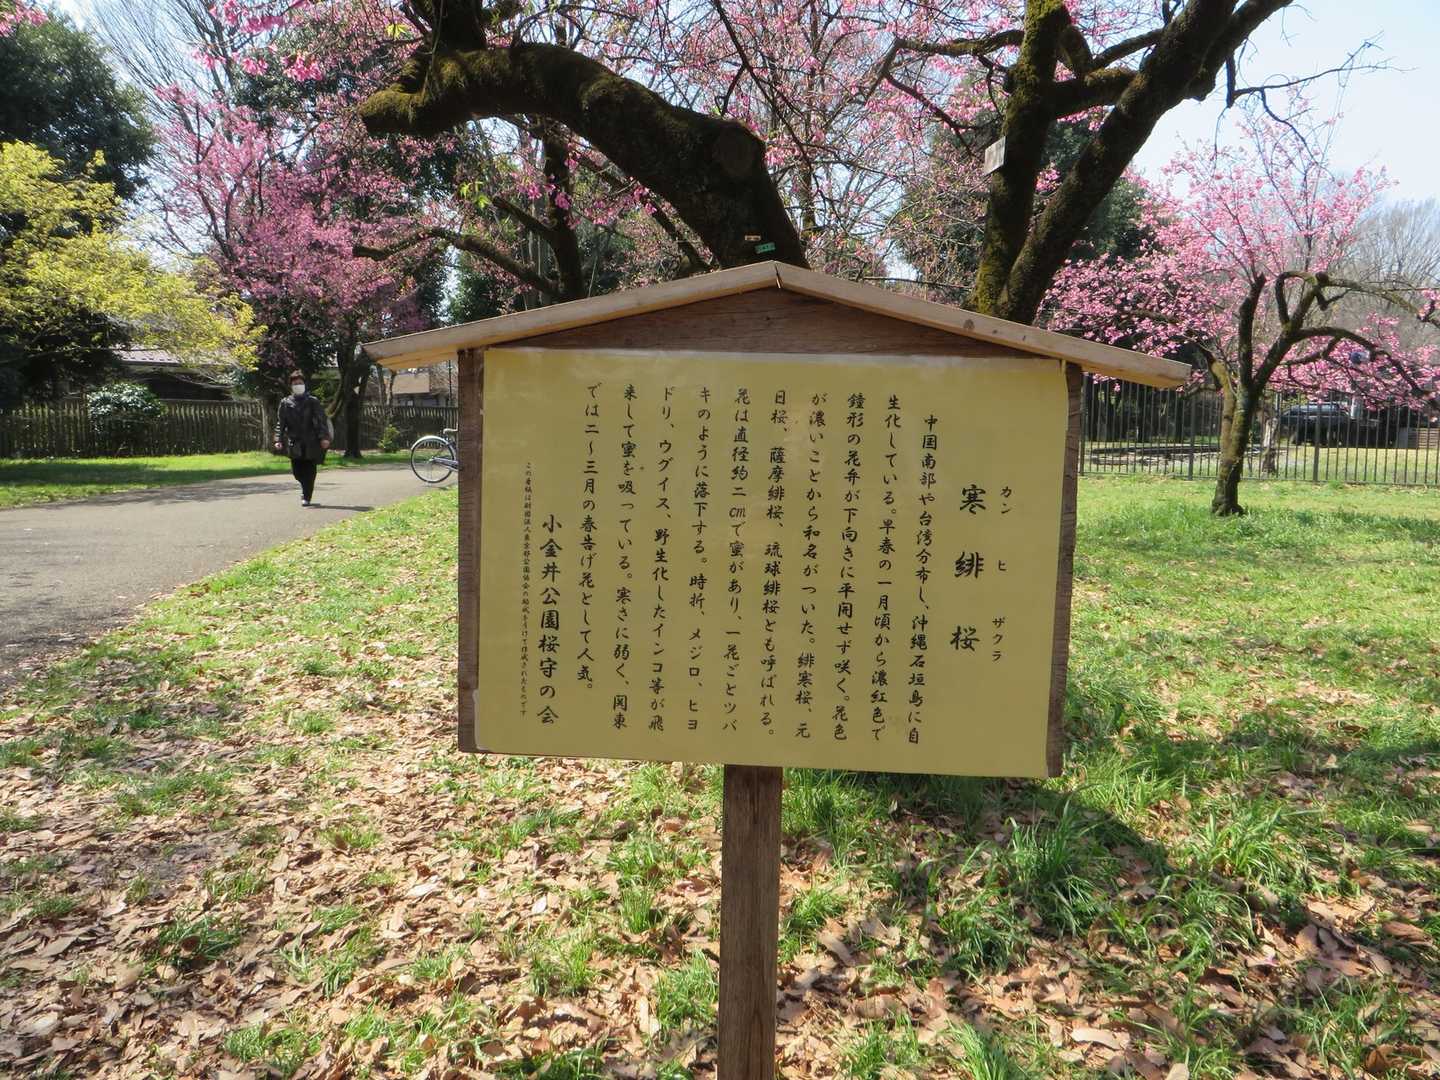 カン ヒ ザクラ
寒緋桜
中国南部や台湾分布し、沖縄石垣島に自
生化している。早春の一月頃から濃紅色で
鐘形の花弁が下向きに平開せず咲く。花色
が濃いことから和名がついた。緋寒桜、元
日桜、薩摩緋桜、琉球緋桜とも呼ばれる。
花は直径約二cmで蜜があり、一花ごとツバ
キのように落下する。時折、メジロ、ヒヨ
ドリ、ウグイス、野生化したインコ等が飛
来して蜜を吸っている。寒さに弱く、関東
では二〜三月の春告げ花として人気。
小金井公園桜守の会
この看板は財団法人東京都公園協会の助成をうけて作成されたものです